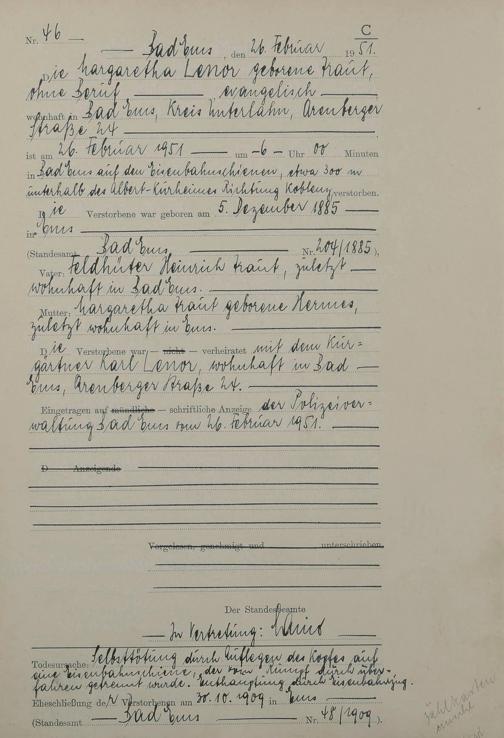 C
Nr. 46
Bad Ems, den 26. Februar 1951.
Die Margaretha Lenor geborene Kraut,
ohne Beruf evangelisch
wohnhaft in Bad Ems, Kreis Unterlahn, Arenberger
Straße 24
ist am 26. Februar 1951 um 6 Uhr 00 Minuten
in Bad Ems auf den Eisenbahnschienen, etwa 300 m
unterhalb des Albert-Kurheimes Richtung Koblenz verstorben.
Die Verstorbene war geboren am 5. Dezember 1885
in Ems
(Standesamt Bad Ems Nr. 204/1885),
Vater: Feldhüter Heinrich Kraut, zuletzt
wohnhaft in Bad Ems.
Mutter: Margaretha Kraut geborene Hermes,
zuletzt wohnhaft in Ems.
Die Verstorbene war — nicht — verheiratet mit dem Kur-
gärtner Karl Lenor, wohnhaft in Bad
Ems, Arenberger Straße 24.
Eingetragen auf mündliche — schriftliche Anzeige der Polizeiver-
waltung Bad Ems vom 26. Februar 1951.
D Anzeigende
Vorgelesen, genehmigt und unterschrieben
Der Standesbeamte
In Vertretung:
Todesursache: Selbsttötung durch Auflegen des Kopfes auf
eine Eisenbahnschiene, der vom Rumpf durch über-
fahren getrennt wurde. Enthauptung durch Eisenbahnzug.
Eheschließung der Verstorbenen am 30.10.1909 in Ems
(Standesamt Bad Ems Nr. 48/1909).